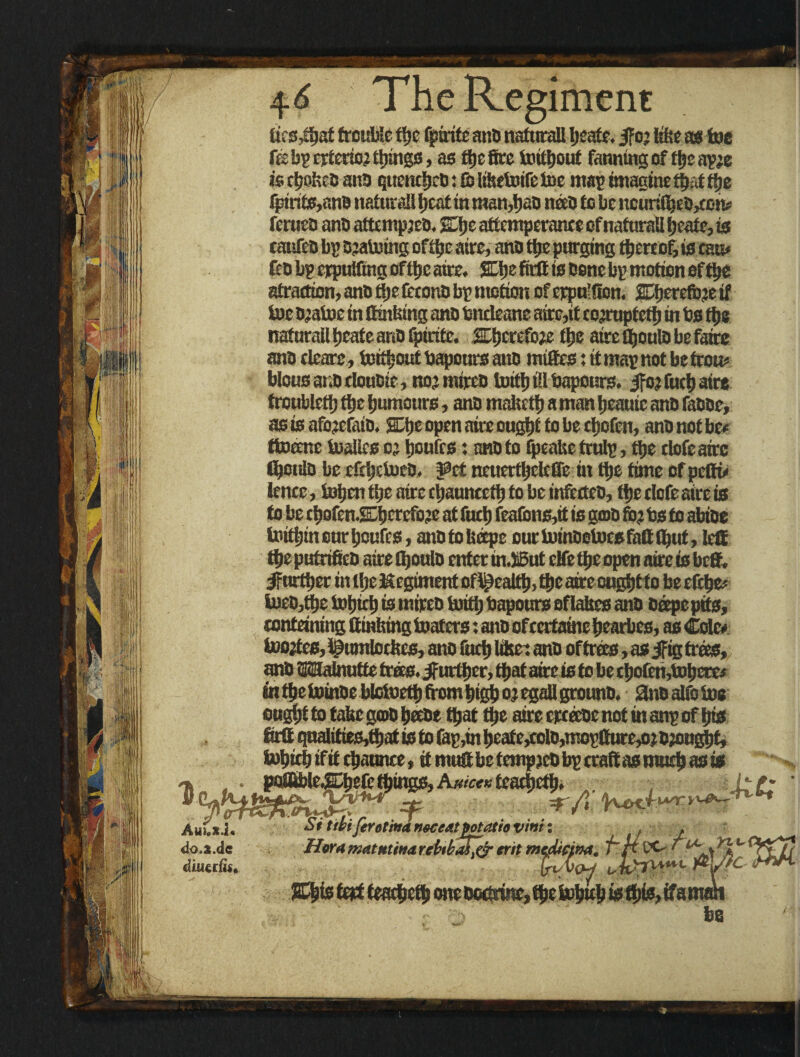 46 The Regiment
ties, that trouble the spirite and naturall heate. For like as we
sée by exterior things, as the fire without fanning of the ayre
is choked and quenched: so likewise we may imagine that the
spirits, and naturall heat in man, had néed to be nourished, con-
serued and attempred. The attemperance of naturall heate, is
caused by drawing of the aire, and the purging thereof, is cau-
sed by expulsing of the aire. The first is done by motion of the
atraction, and the second by motion of expulsion. Therefore if
we drawe in stinking and vncleane aire, it corrupteth in vs the
naturall heate and spirite. Therefore the aire should be faire
and cleare, without vapours and mistes: it may not be trou-
blous and cloudie, nor mixed with ill vapours. For such aire
troubleth the humours, and maketh a man heauie and sadde,
as is aforesaid. The open aire ought to be chosen, and not be-
twéene walles or houses: and to speake truly, the close aire
should be eschewed. Yet neuerthelesse in the time of pesti-
lence, when the aire chaunceth to be infected, the close aire is
to be chosen. Therefore at such seasons, it is good for vs to abide
within our houses, and to kéepe our windowes fast shut, lest
the putrified aire should enter in. But else the open aire is best.
Further in the Regiment of Health, the aire ought to be esche-
wed, the which is mixed with vapours of lakes and déepe pits,
conteining stinking waters: and of certaine hearbes, as Cole-
wortes, Humlockes, and such like: and of trées, as Fig trées,
and Walnutte trées. Further, that aire is to be chosen, where-
in the winde bloweth from high or egall ground. And also we
ought to take good héede that the aire excéede not in any of his
first qualities, that is to say, in heate, cold, moysture, or drought,
which if it chaunce, it must be tempred by craft as much as is
possible. These things, Auicen teacheth.
Aui.2.i.
do.2.de
diuersis.
Si tibi serotina noceat potatio vini:
Hora matutina rebibas, & erit medicina.
This text teacheth one doctrine, the which is this, if a man
be